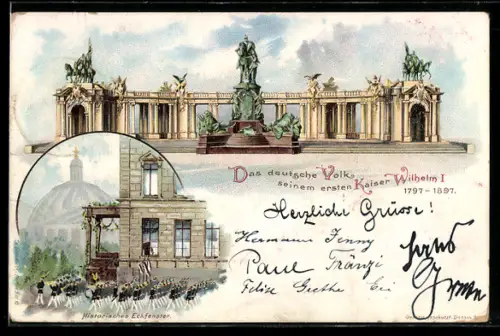 Das deutsche Volk
seinem ersten Kaiser Wilhelm I
1797-1897.
Herzliche Grüsse!
Hermann Jenny
Paul Fränzi
Felix Grethe
Historisches Eckfenster.